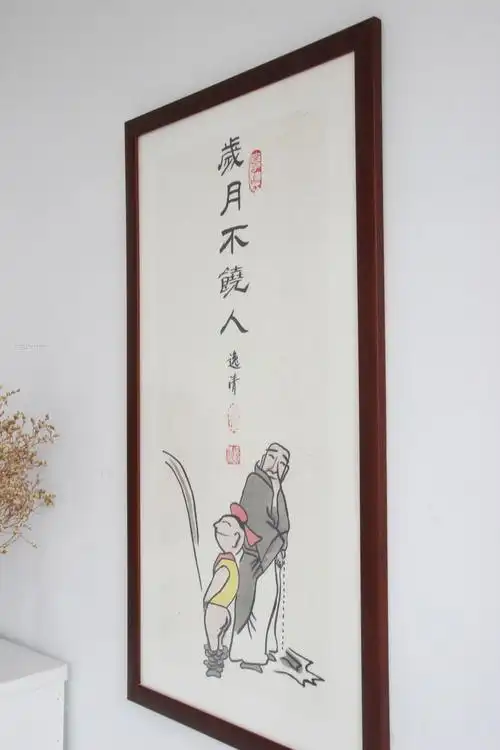 歲月不饒人
逸清